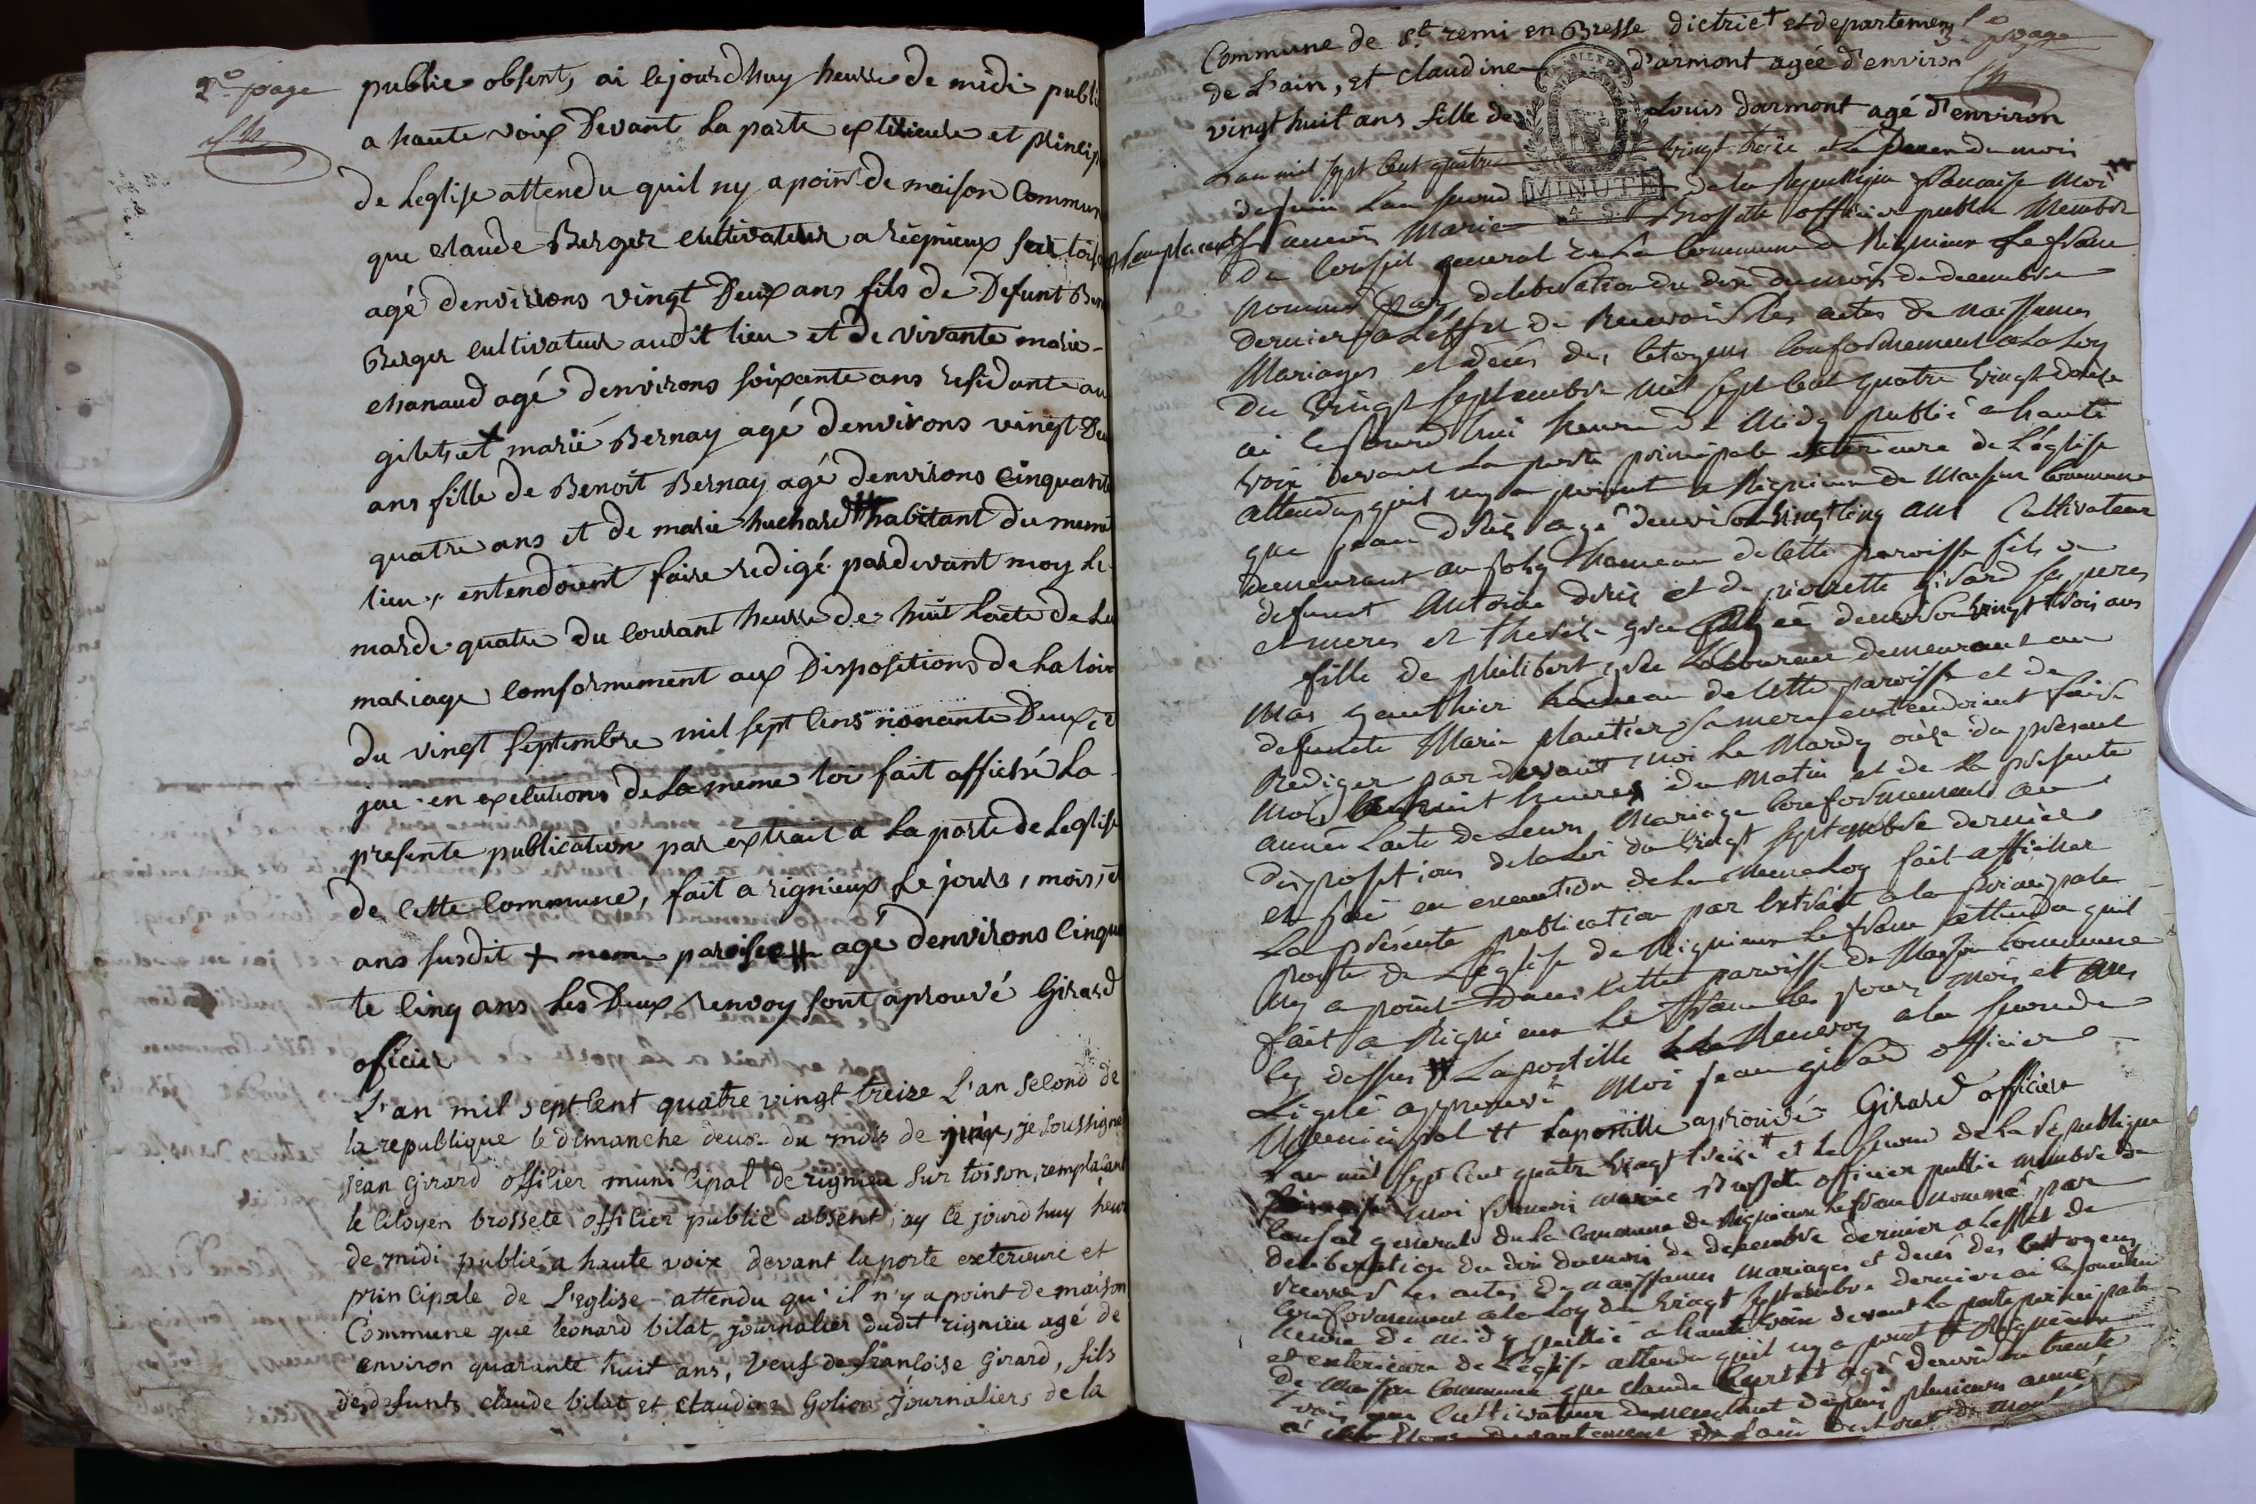 2e page
publie absent, ai cejourdhuy heure de midi publi
a haute voix Devant la porte exterieure et princip
de Leglise attendu quil ny a point de maison Commun
que claude Berger cultivateur a rignieux sur toison
agé denvirons vingt Deux ans fils de Defunt Ben
Berger cultivateur audit lieu et de vivante marie
chanaud agé denvirons soixante ans residante au
gilets et marië Bernay agé denvirons vingt Deu
ans fille de Benoit Bernay agé denvirons cinquante
quatre ans et de marie huchard # habitant du meme
lieu, entendoient faire redigé pardevant moy le
marde quatre du courant heure de huit Lacte de Leu
mariage comformement aux Dispositions de La loix
du vingt septembre mil sept cens nonante Deux, et
jai en exécutions de La meme loi fait affiché La
presente publication par extrait a La porte de Leglise
de cette commune, fait a rignieux Le jours, mois, et
ans susdit + meme paroisse # agé denvirons cinquan
te cinq ans Les Deux renvoy sont aprouvé Girard
oficier
L'an mil sept cent quatre vingt treize L'an second de
la republique le dimanche deux du mois de juin, je soussigné
jean Girard officier municipal de rignieu sur toison, remplacant
le citoyen brossete officier public absent, ay ce jourdhuy heure
de midi publié a haute voix devant la porte exterieure et
principale de L'eglise attendu qu'il n'y a point de maison
Commune que leonard bilat journalier dudit rignieu agé de
environ quarante huit ans, veuf de françoise Girard, fils
des defunts claude bilat et claudine Golion journaliers de la
Commune de St remi en Bresse dictrict et departement
3e page
de Lain, et claudine d'armont agée d'environ
vingt huit ans fille de Louis darmont agé d'environ
L'an mil sept cent quatre vingt treize et le deux du mois
MINUTE
de juin Lan second de la Republique francaise moi
remplacant
francois Marie Brossette officier public Membre
du Conseil general de La Commune de Rignieux Le franc
nommé par deliberation du dix du mois de decembre
dernier a Leffet de Recevoir les actes de naissances
Mariages et deces des Citoyens Conformement a La Loy
du vingt septembre mil sept Cent quatre vingt douze
ai cejourd'hui heure de Midy publié a haute
voix devant La porte principale exterieure de L'église
attendu quil ny a point a Rignieux de Maison Commune
que jean agé denviron vingt cinq ans Cultivateur
demeurant au hameau de Cette paroisse fils de
defunct Antoine et de pierrette girard ses peres
et meres et agée denviron vingt trois ans
fille de philibert Laboureur demeurant au
Mas gauthier hameau de Cette paroisse et de
defuncte Marie plantier sa mere entendoient faire
Rediger par devant moi Le Mardy onze du présent
Mois huit heures du Matin et de la presente
année Lacte de Leurs Mariage Conformement au
dispositions de La Loi du vingt septembre derniere
et jai en execution de La Meme Loy fait afficher
La présente publication par Extrait a la principale
porte de L'église de Rignieux Le franc attendu quil
ny a point dans Cette paroisse de Maison Commune
fait a Rignieux Le franc Les jour mois et ans
cy dessus # Lapostille Renvoy a la seconde
Ligne approuvé Moi jean girard officier
Municipal # Lapostille aprouvée Girard officier
Lan mil sept Cent quatre vingt treize et Le second de La République
moi francois marie Brossette officier public membre du
Conseil general de La Commune de Rignieux Le franc nommé par
deliberation du dix du mois de decembre dernier a Leffet de
recevoir Les actes de naissances mariages et deces des Citoyens
Conformement a La Loy du vingt septembre dernier ai Cejourdhui
heure de midy publié a haute voix devant La porte principale
et exterieure de L'église attendu quil ny a point a Rignieux
de Maison Commune que claude Curtet agé denviron trente
trois ans Cultivateur demeurant depuis plusieurs année
departement de Lain district de